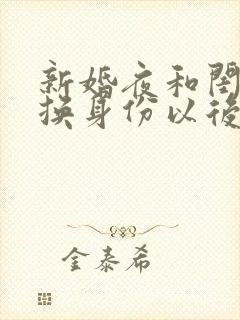 新婚夜和閨
换身份以後
金泰希